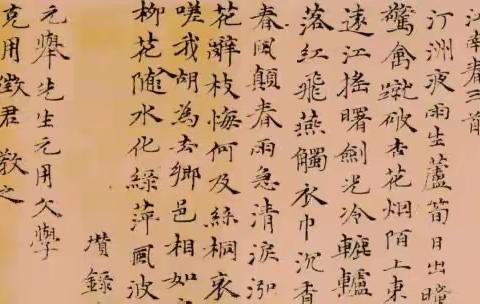 江南春三首
汀洲夜雨生蘆筍日出曈
驚禽蹴破杏花烟陌上東
遠江搖曙劍光冷轆轤
落紅飛燕觸衣巾沉香
春風顛春雨急清淚泓
花辭枝悔何及絲桐哀
嗟我胡為去鄉邑相如
柳花隨水化綠萍風波
瓚錄
元舉先生元用文學
克用徵君 教之